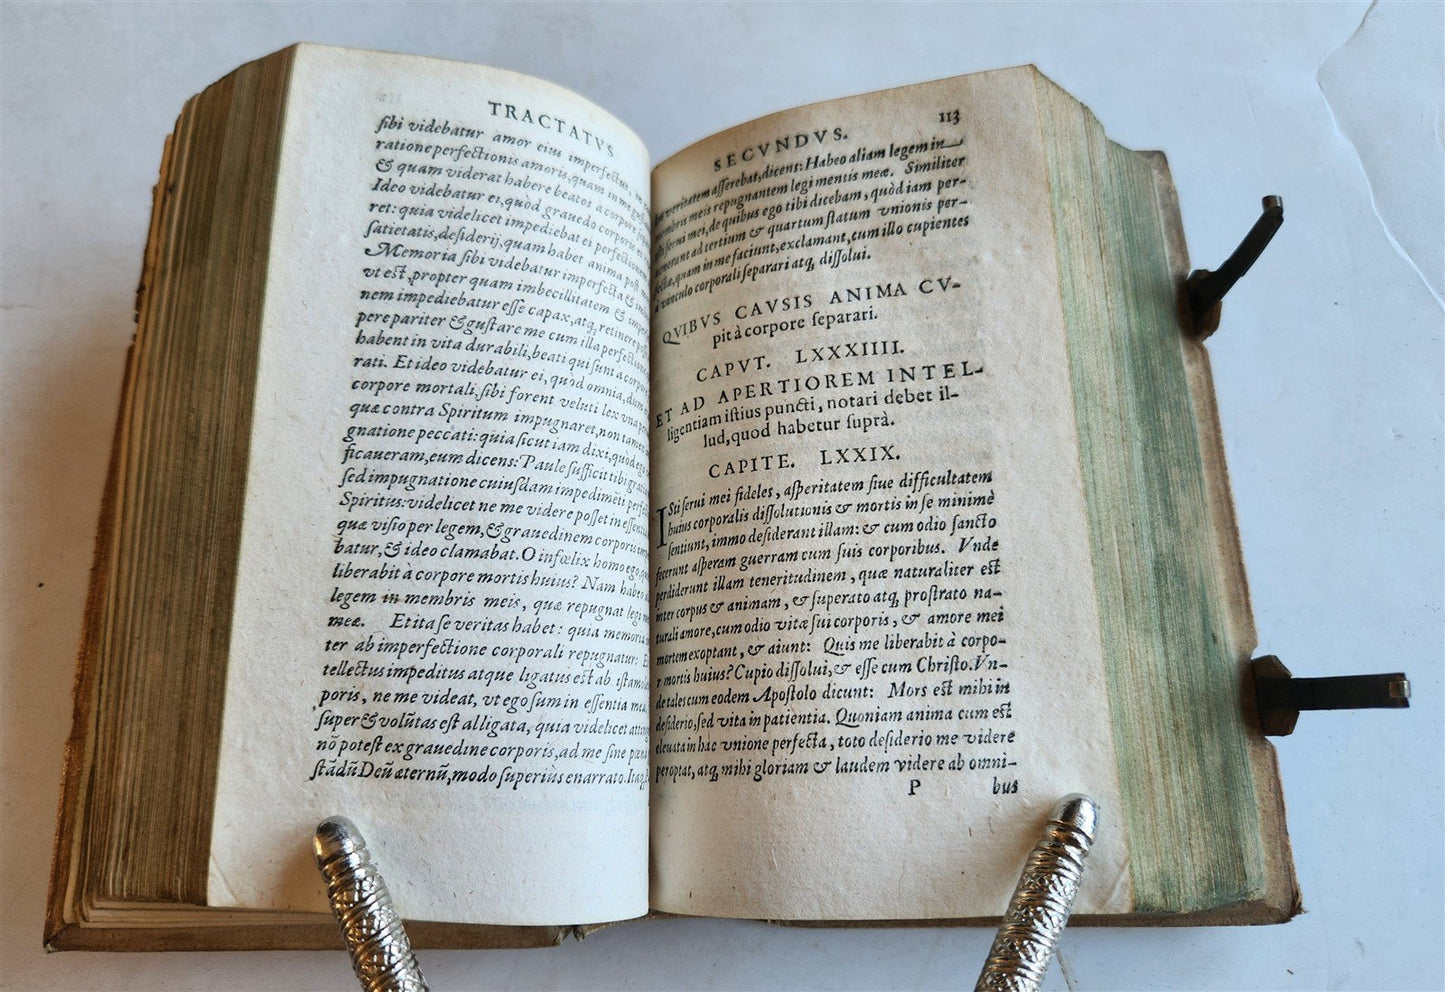 TRACTATVS
sibi videbatur amor eius imperfectus,
ratione perfectionis amoris, quam in me
& quam viderat habere beatos à corpore
Ideo videbatur ei, quod grauedo corporis
ret: quia videlicet impediebat ei perfectionem
satietatis, desiderij, quam habet anima post
Memoria sibi videbatur imperfecta &
vt est, propter quam imbecillitatem &
nem impediebatur esse capax, atq, retinere
pere pariter & gustare me cum illa perfectione
habent in vita durabili, beati qui sunt à corpore
rati. Et ideo videbatur ei, quod omnia, dum
corpore mortali, sibi forent veluti lex vna
quæ contra Spiritum impugnaret, non tamen
gnatione peccati: quia sicut iam dixi, quod ego
ficaueram, eum dicens: Paule sufficit tibi gratia
sed impugnatione cuiusdam impedimēti
Spiritus: videlicet ne me videre posset in
quæ visio per legem, & grauedinem corporis
batur, & ideo clamabat. O infœlix homo ego,
liberabit à corpore mortis huius? Nam habeo
legem in membris meis, quæ repugnat legi
meæ. Et ita se veritas habet: quia memoria
ter ab imperfectione corporali repugnatur:
tellectus impeditus atque ligatus est ab ista
poris, ne me videat, vt ego sum in essentia mea,
super & volūtas est alligata, quia videlicet
nō potest ex grauedine corporis, ad me sine
stādū Deū æternū, modo superius enarrato. Itaq,
SECVNDVS. 113
veritatem asserebat, dicens: Habeo aliam legem in
membris meis repugnantem legi mentis meæ. Similiter
serui mei, de quibus ego tibi dicebam, quòd iam per-
uenerant ad tertium & quartum statum vnionis per-
fectæ, quam in me faciunt, exclamant, cum illo cupientes
à vinculo corporali separari atq, dissolui.
QVIBVS CAVSIS ANIMA CV-
pit à corpore separari.
CAPVT. LXXXIIII.
ET AD APERTIOREM INTEL-
ligentiam istius puncti, notari debet il-
lud, quod habetur suprà.
CAPITE. LXXIX.
ISti serui mei fideles, asperitatem siue difficultatem
huius corporalis dissolutionis & mortis in se minimè
sentiunt, immo desiderant illam: & cum odio sancto
fecerunt asperam guerram cum suis corporibus. Vnde
perdiderunt illam teneritudinem, quæ naturaliter est
inter corpus & animam, & superato atq, prostrato na-
turali amore, cum odio vitæ sui corporis, & amore mei
mortem exoptant, & aiunt: Quis me liberabit à corpo-
r mortis huius? Cupio dissolui, & esse cum Christo. Vn-
de tales cum eodem Apostolo dicunt: Mors est mihi in
desiderio, sed vita in patientia. Quoniam anima cum est
eleuata in hac vnione perfecta, toto desiderio me videre
peroptat, atq, mihi gloriam & laudem videre ab omni-
P bus